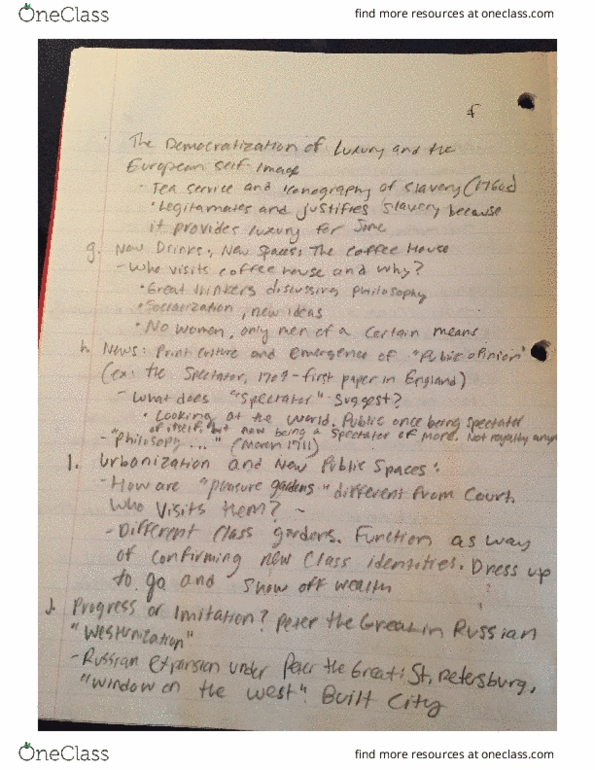 OneClass
find more resources at oneclass.com
The Democratization of Luxury and the
European self Image
- Tea service and iconography of slavery (1760s)
• Legitamates and justifies slavery because
it provides luxury for
g. New Drinks, New Spaces: The Coffee House
- Who visits coffee house and why?
• Great thinkers discussing philosophy
• Socialization, new ideas
• No women, only men of a certain means
h. News: Print culture and emergence of "Public opinion"
(ex: the Spectator, 1709 - first paper in England)
- What does "Spectator" suggest?
• Looking at the world. Public once being spectator
of itself, but now being a spectator of more. Not royalty
- "Philosophy ..." (March 1711)
Urbanization and New Public Spaces:
- How are "pleasure gardens" different from Court.
Who Visits them? -
- Different class gardens. Function as way
of confirming new class identities. Dress up
to go and show off wealth
J. Progress or Imitation? Peter the Great in Russian
"Westernization"
- Russian Expansion under Peter the Great: St. Petersburg,
"window on the west". Built City
OneClass
find more resources at oneclass.com